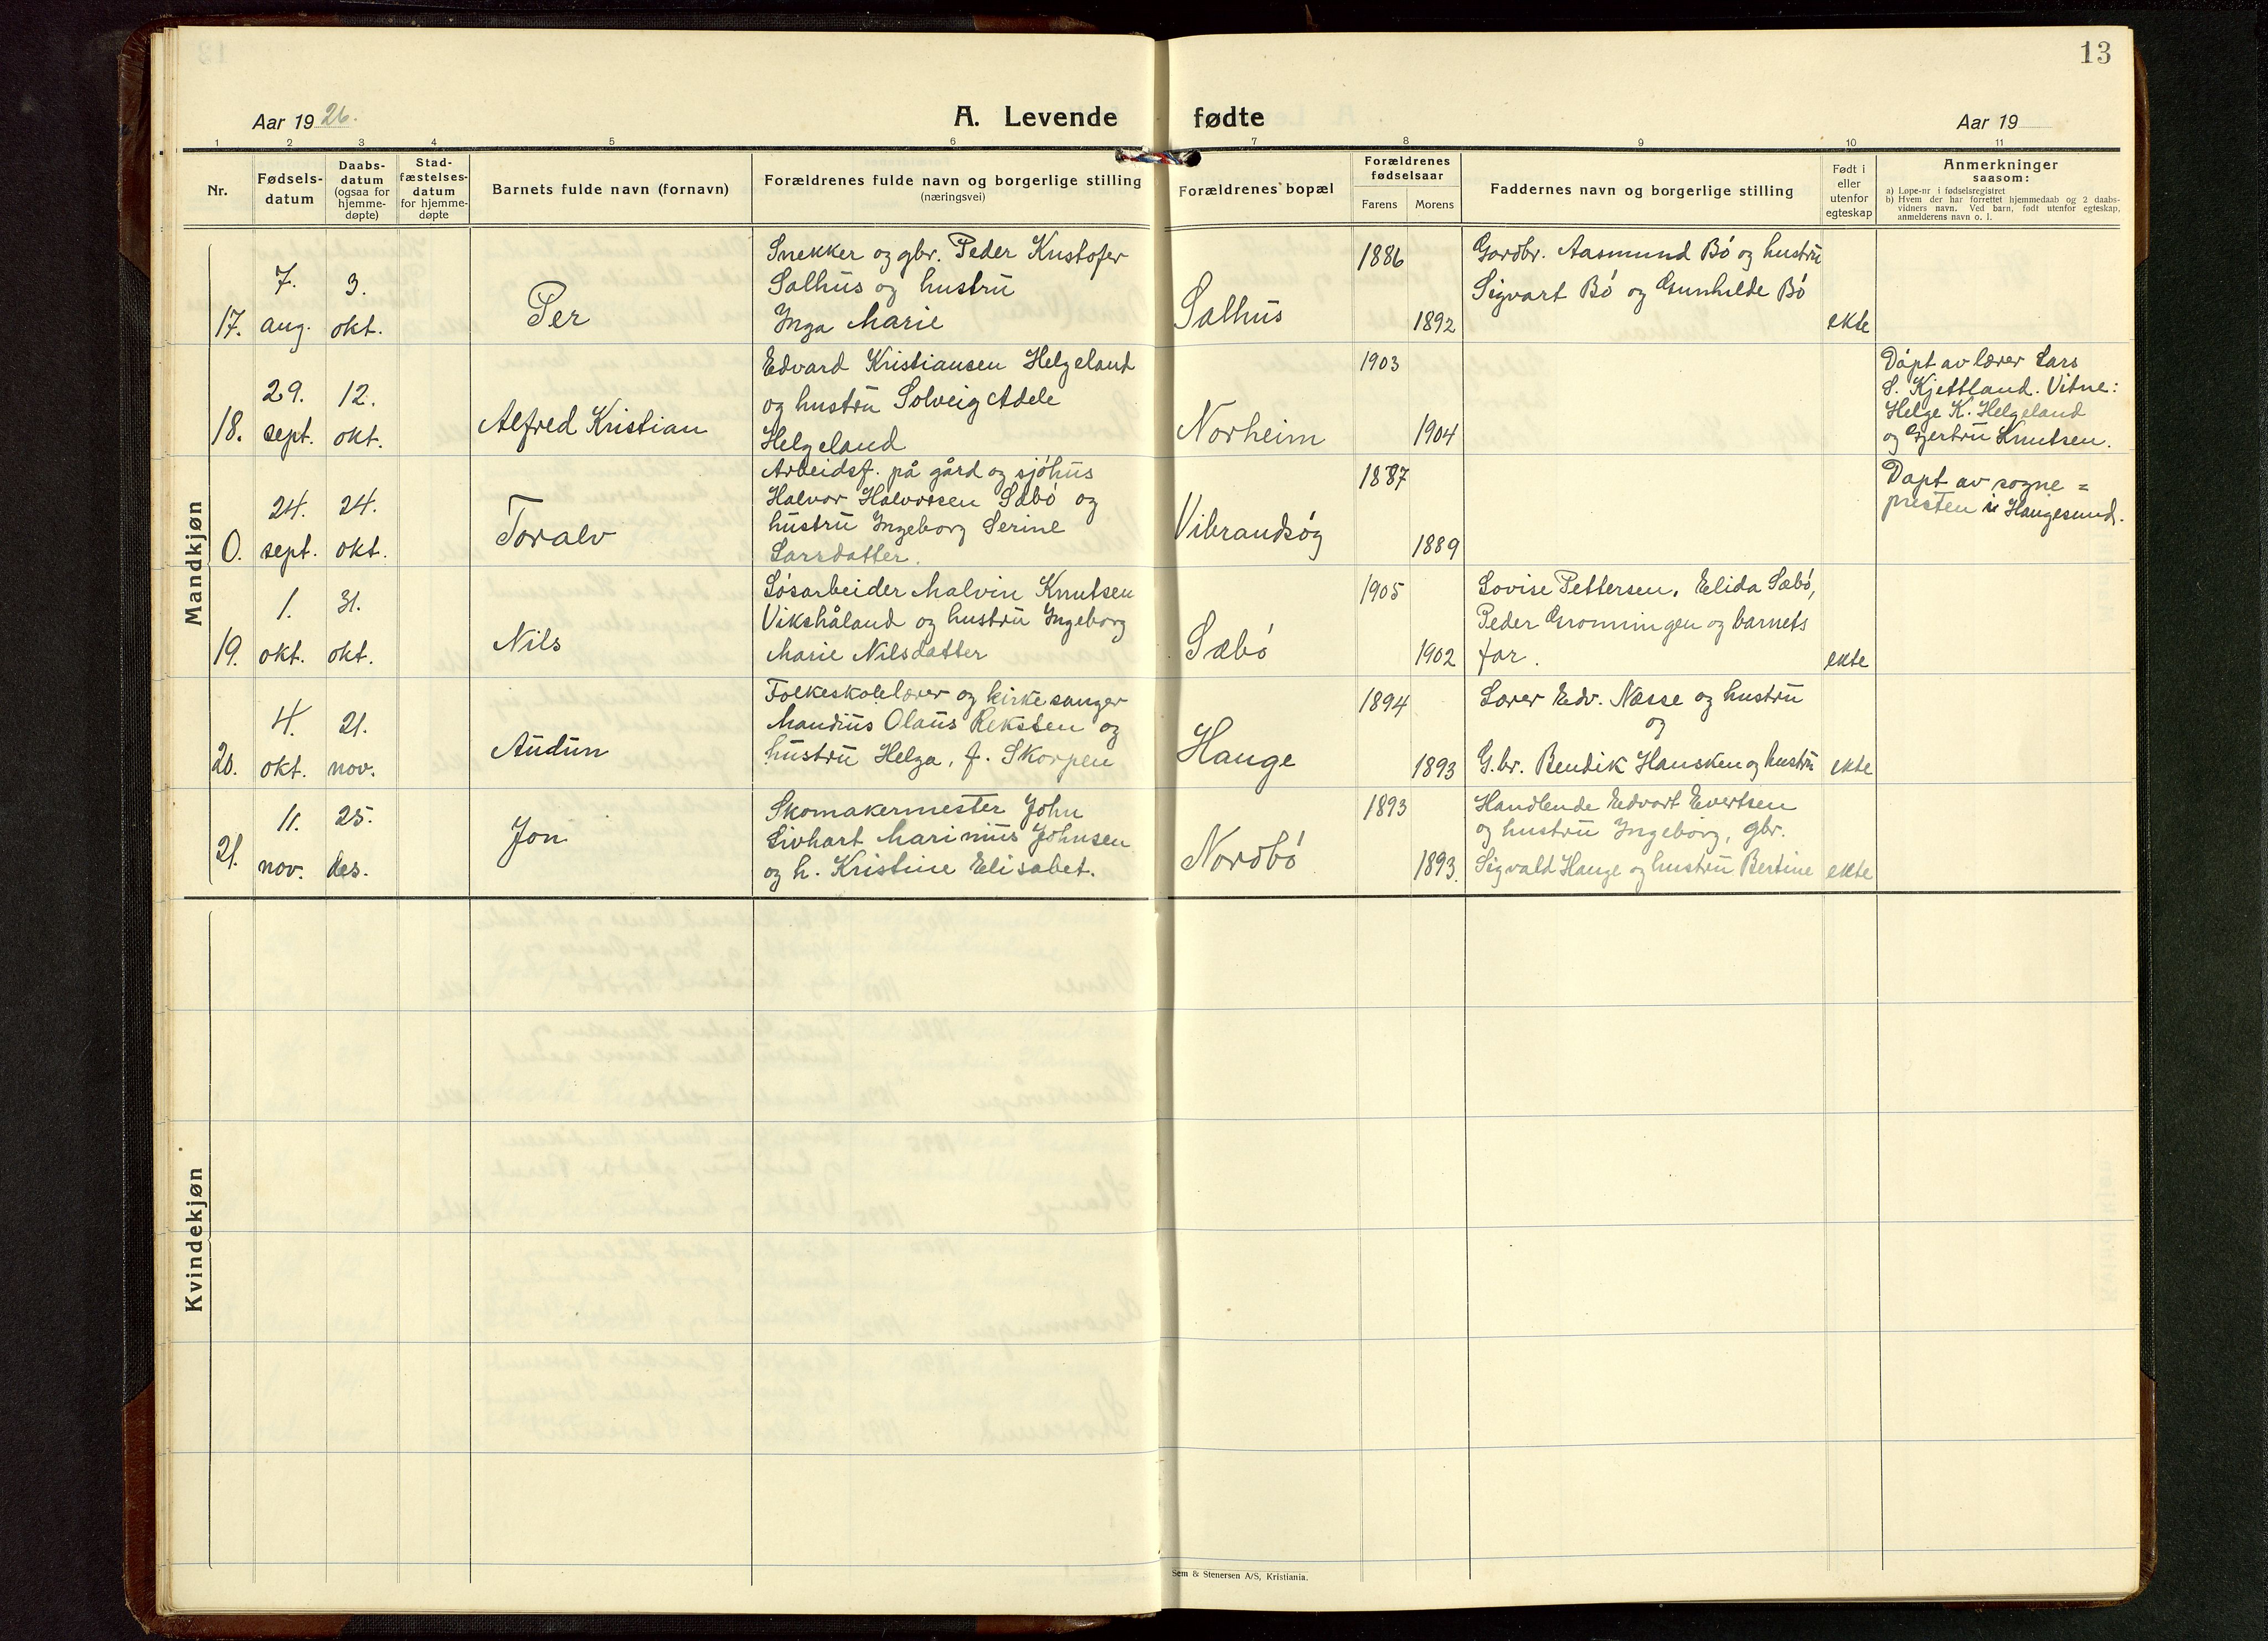 13
Aar 1926.
A. Levende fødte
Aar 19
1 2 3 4 5 6 7 8 9 10 11
Nr.
Fødsels-
datum
Daabs-
datum
(ogsaa for
hjemme-
døpte)
Stad-
fæstelses-
datum
for hjemme-
døpte
Barnets fulde navn (fornavn)
Forældrenes fulde navn og borgerlige stilling
(næringsvei)
Forældrenes bopæl
Forældrenes
fødselsaar
Farens Morens
Faddernes navn og borgerlige stilling
Født i
eller
utenfor
egteskap
Anmerkninger
saasom:
a) Løpe-nr i fødselsregistret
b) Hvem der har forrettet hjemmedaab og 2 daabs-
vidners navn. Ved barn, født utenfor egteskap,
anmelderens navn o. l.
Mandkjøn
17.
7.
aug.
3.
okt.
Per
Snekker og gbr. Peder Kristofer
Salhus og hustru
Inga Marie
Salhus
1886
1892
Gardbr. Aasmund Bø og hustru
Sigvart Bø og Gunhilde Bø
ekte
18.
29.
sept.
12.
okt.
Alfred Kristian
Edvard Kristiansen Helgeland
og hustru Solveig Adele
Helgeland
Norheim
1903
1904
Døpt av lærer Lars
S. Kjettland. Vitne:
Helge K. Helgeland
og Gjertru Knutsen.
0.
24.
sept.
24.
okt.
Toralv
Arbeidsf. på gård og sjøhus
Halvor Halvorsen Sæbø og
hustru Ingeborg Serine
Larsdatter.
Vibrandsøy
1887
1889
Døpt av sogne=
presten i Haugesund.
19.
1.
okt.
31.
okt.
Nils
Løsarbeider Malvin Knutsen
Vikshåland og hustru Ingeborg
Marie Nilsdatter
Sæbø
1905
1902
Lovise Pettersen, Elida Sæbø,
Peder Grønningen og barnets
far.
ekte
20.
4.
okt.
21.
nov.
Audun
Folkeskolelærer og kirkesanger
Mandius Olaus Reksten og
hustru Helga, f. Skorpen
Hauge
1894
1893
Lærer Edv. Næsse og hustru
og
G.br. Bendik Hansken og hustru
ekte
21.
11.
nov.
25.
des.
Jon
Skomakermester John
Sivhart Marinius Johnsen
og h. Kristine Elisabet.
Nordbø
1893
1893.
Handlende Edvart Evertsen
og hustru Ingeborg, gbr.
Sigvald Hauge og hustru Bertine
ekte
Kvindekjøn
Sem & Stenersen A/S, Kristiania.